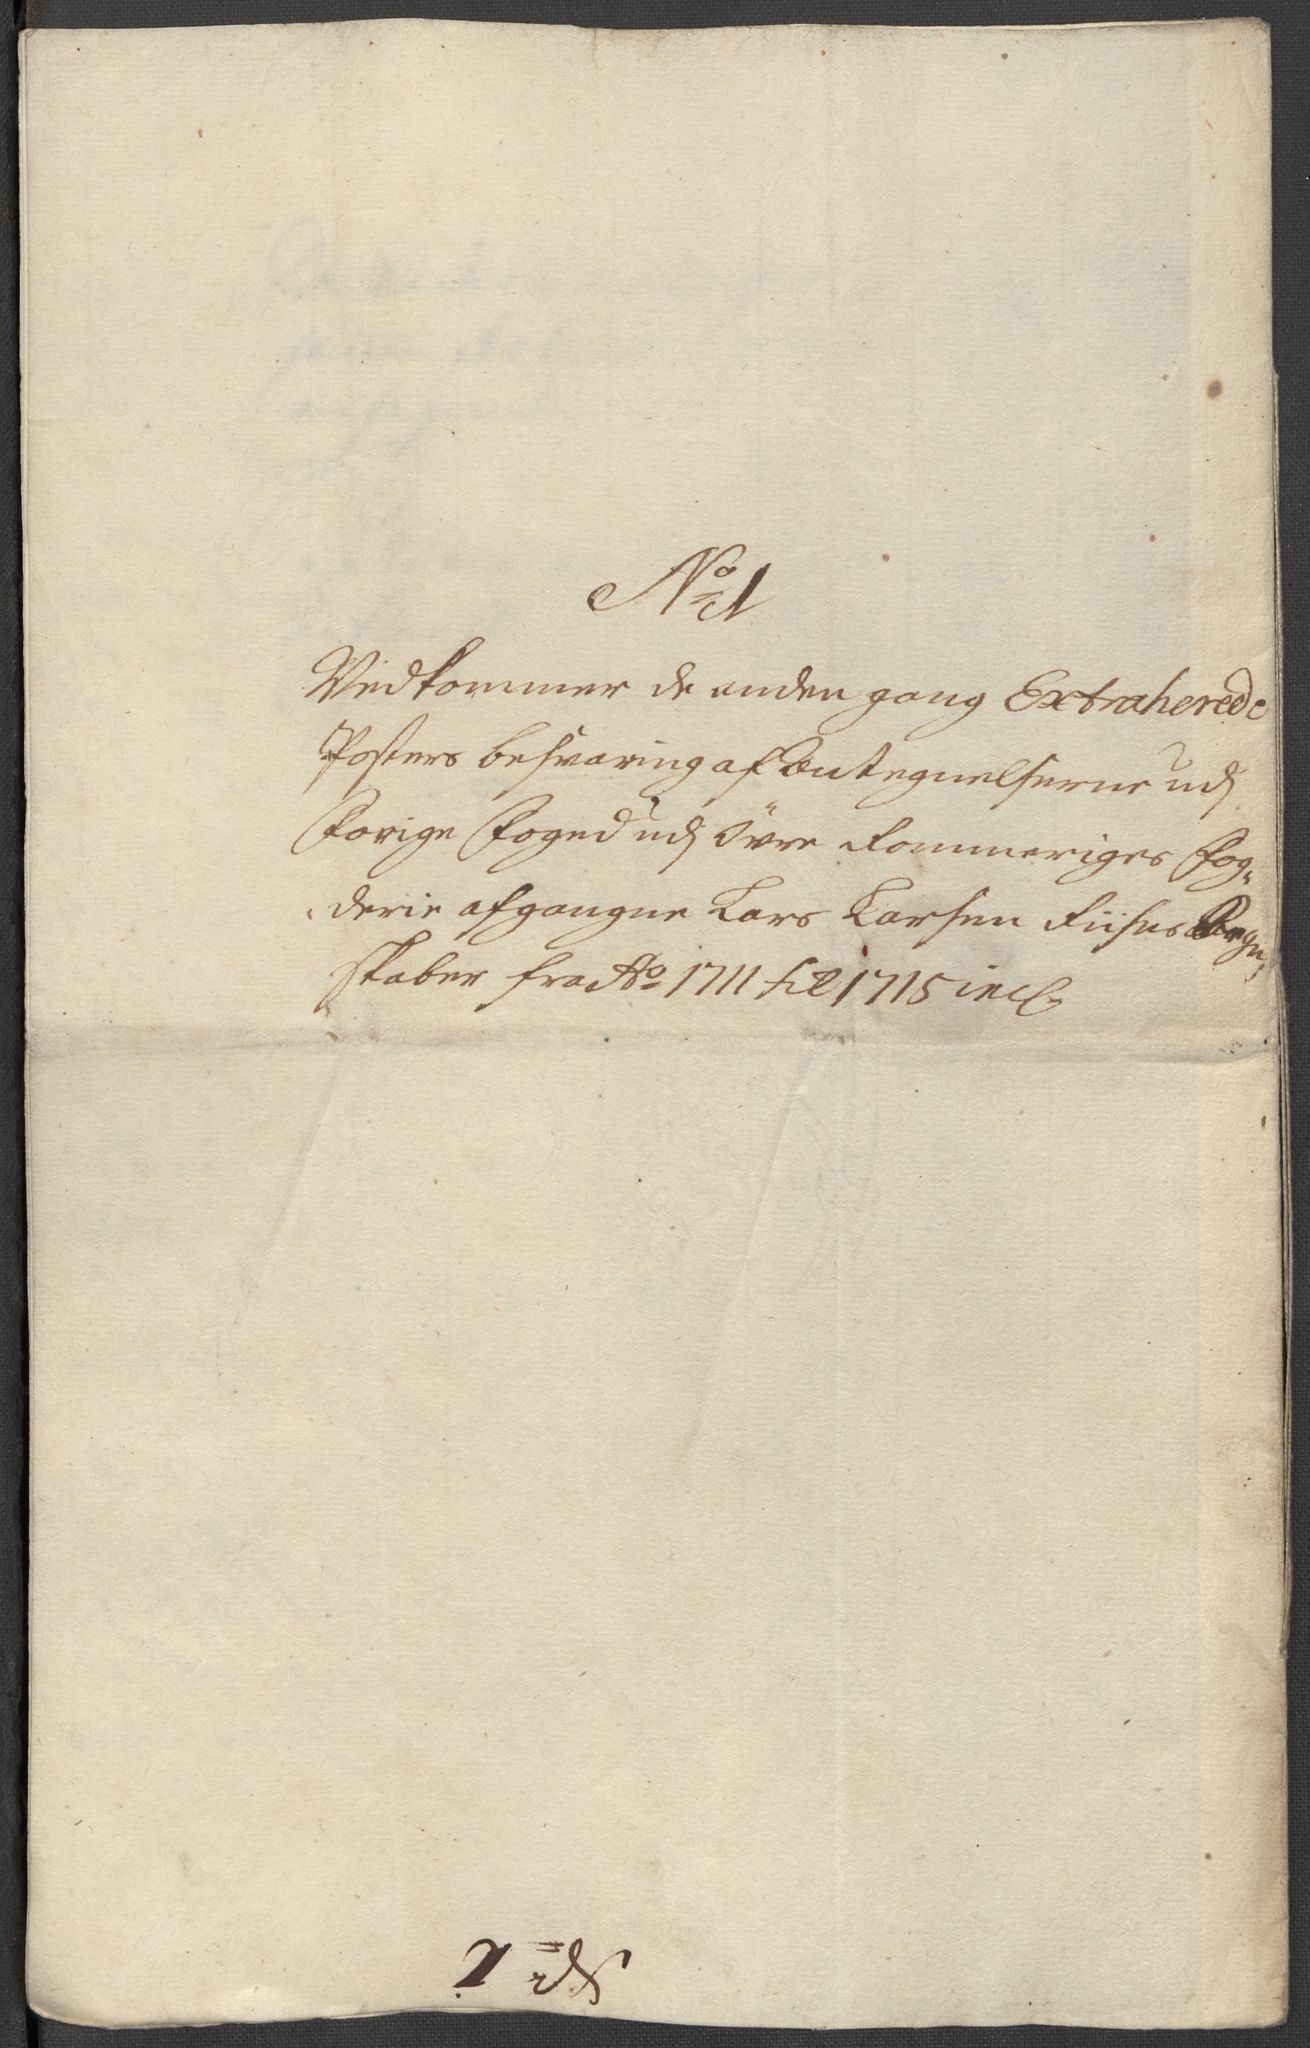 No 1
Vedkommer de anden gang Extraherede
Posters besvaring af Antegnelserne udj
Forige Foged udj Övre Rommeriges Fog-
derie afgangne Lars Larsen Riises Regn-
skaber fra Ao 1711 til 1715 incl.